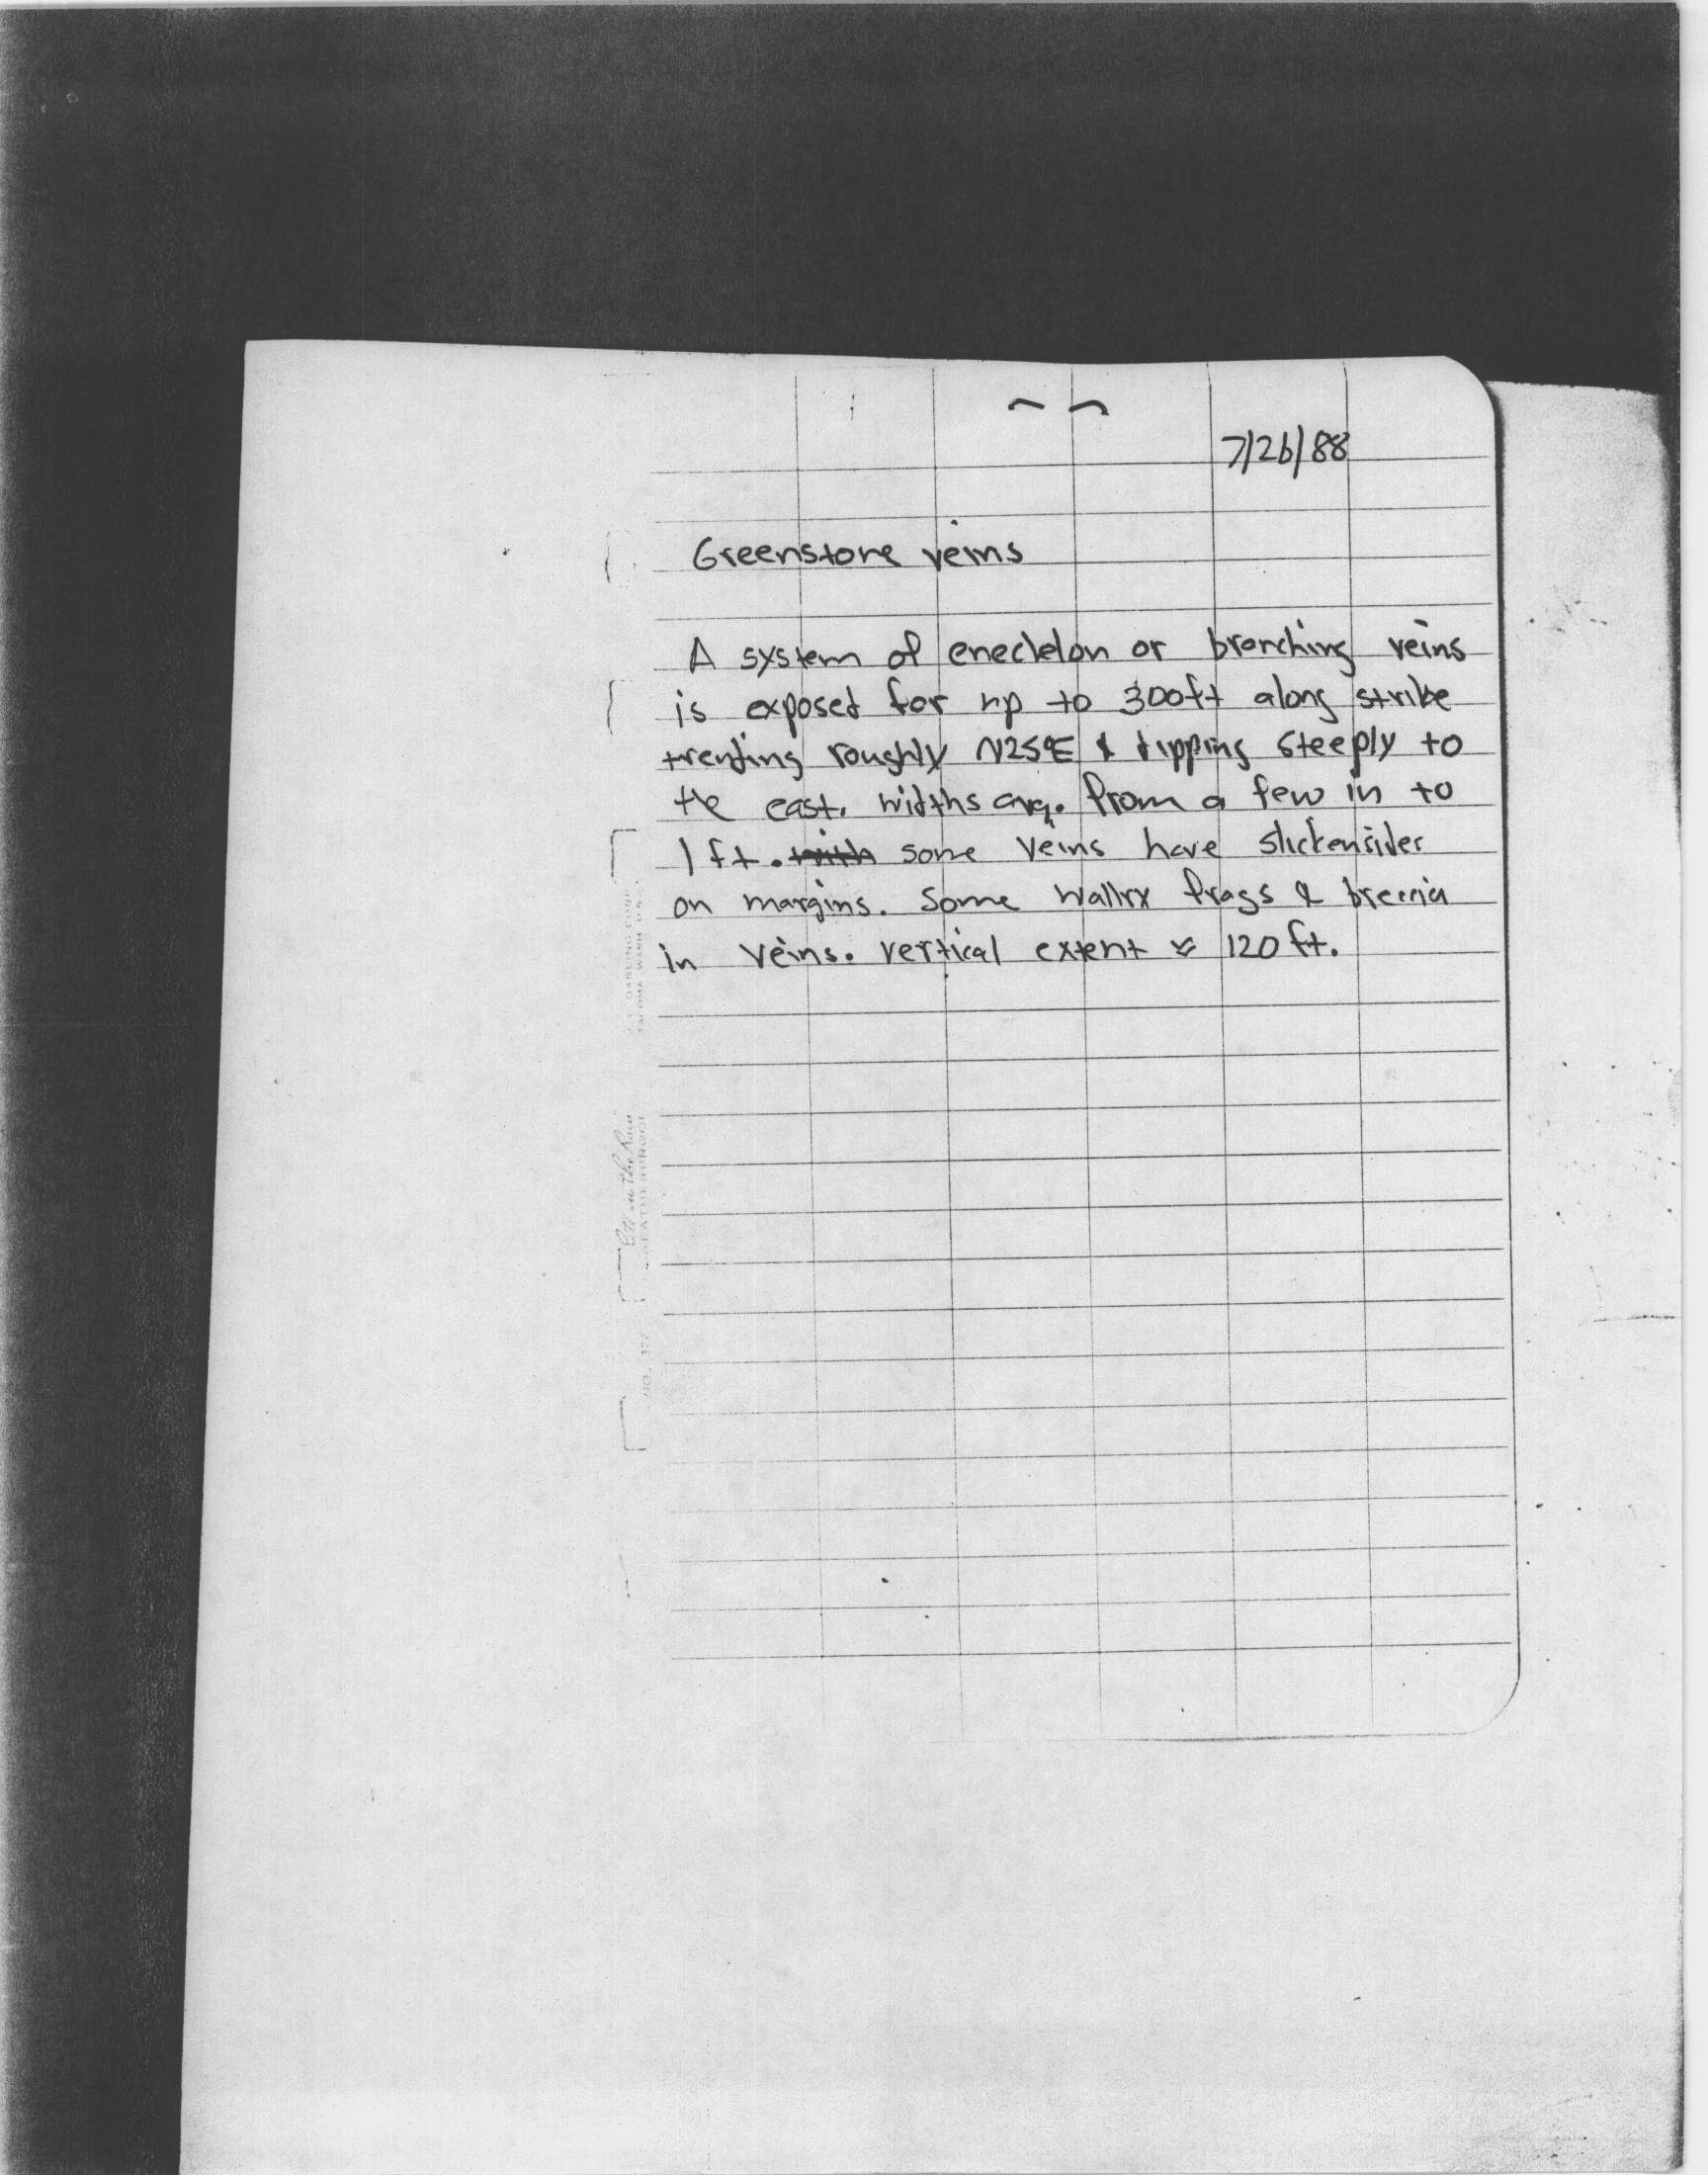 7/26/88
Greenstone veins
A system of enechelon or branching veins
is exposed for up to 300ft along strike
trending roughly N25°E & dipping steeply to
the east. widths avg. from a few in to
1 ft. with some veins have slickensides
on margins. Some wallrx frags & breccia
in veins. vertical extent ≈ 120 ft.